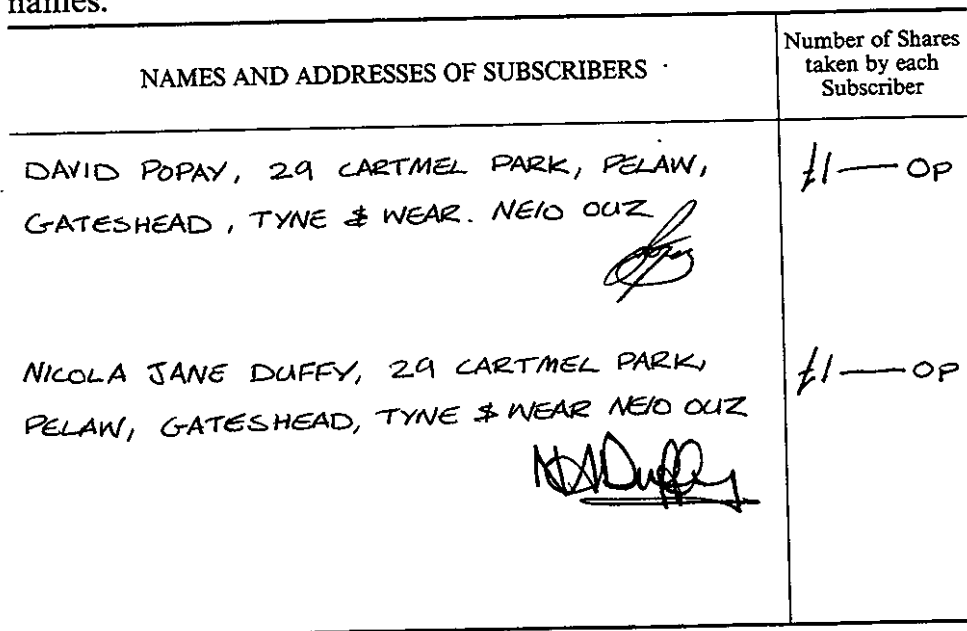 names.
NAMES AND ADDRESSES OF SUBSCRIBERS
Number of Shares
taken by each
Subscriber
DAVID POPAY, 29 CARTMEL PARK, PELAW,
£1 — 0p
GATESHEAD, TYNE & WEAR. NE10 0UZ
NICOLA JANE DUFFY, 29 CARTMEL PARK,
£1 — 0p
PELAW, GATESHEAD, TYNE & WEAR NE10 0UZ
NJDuffy